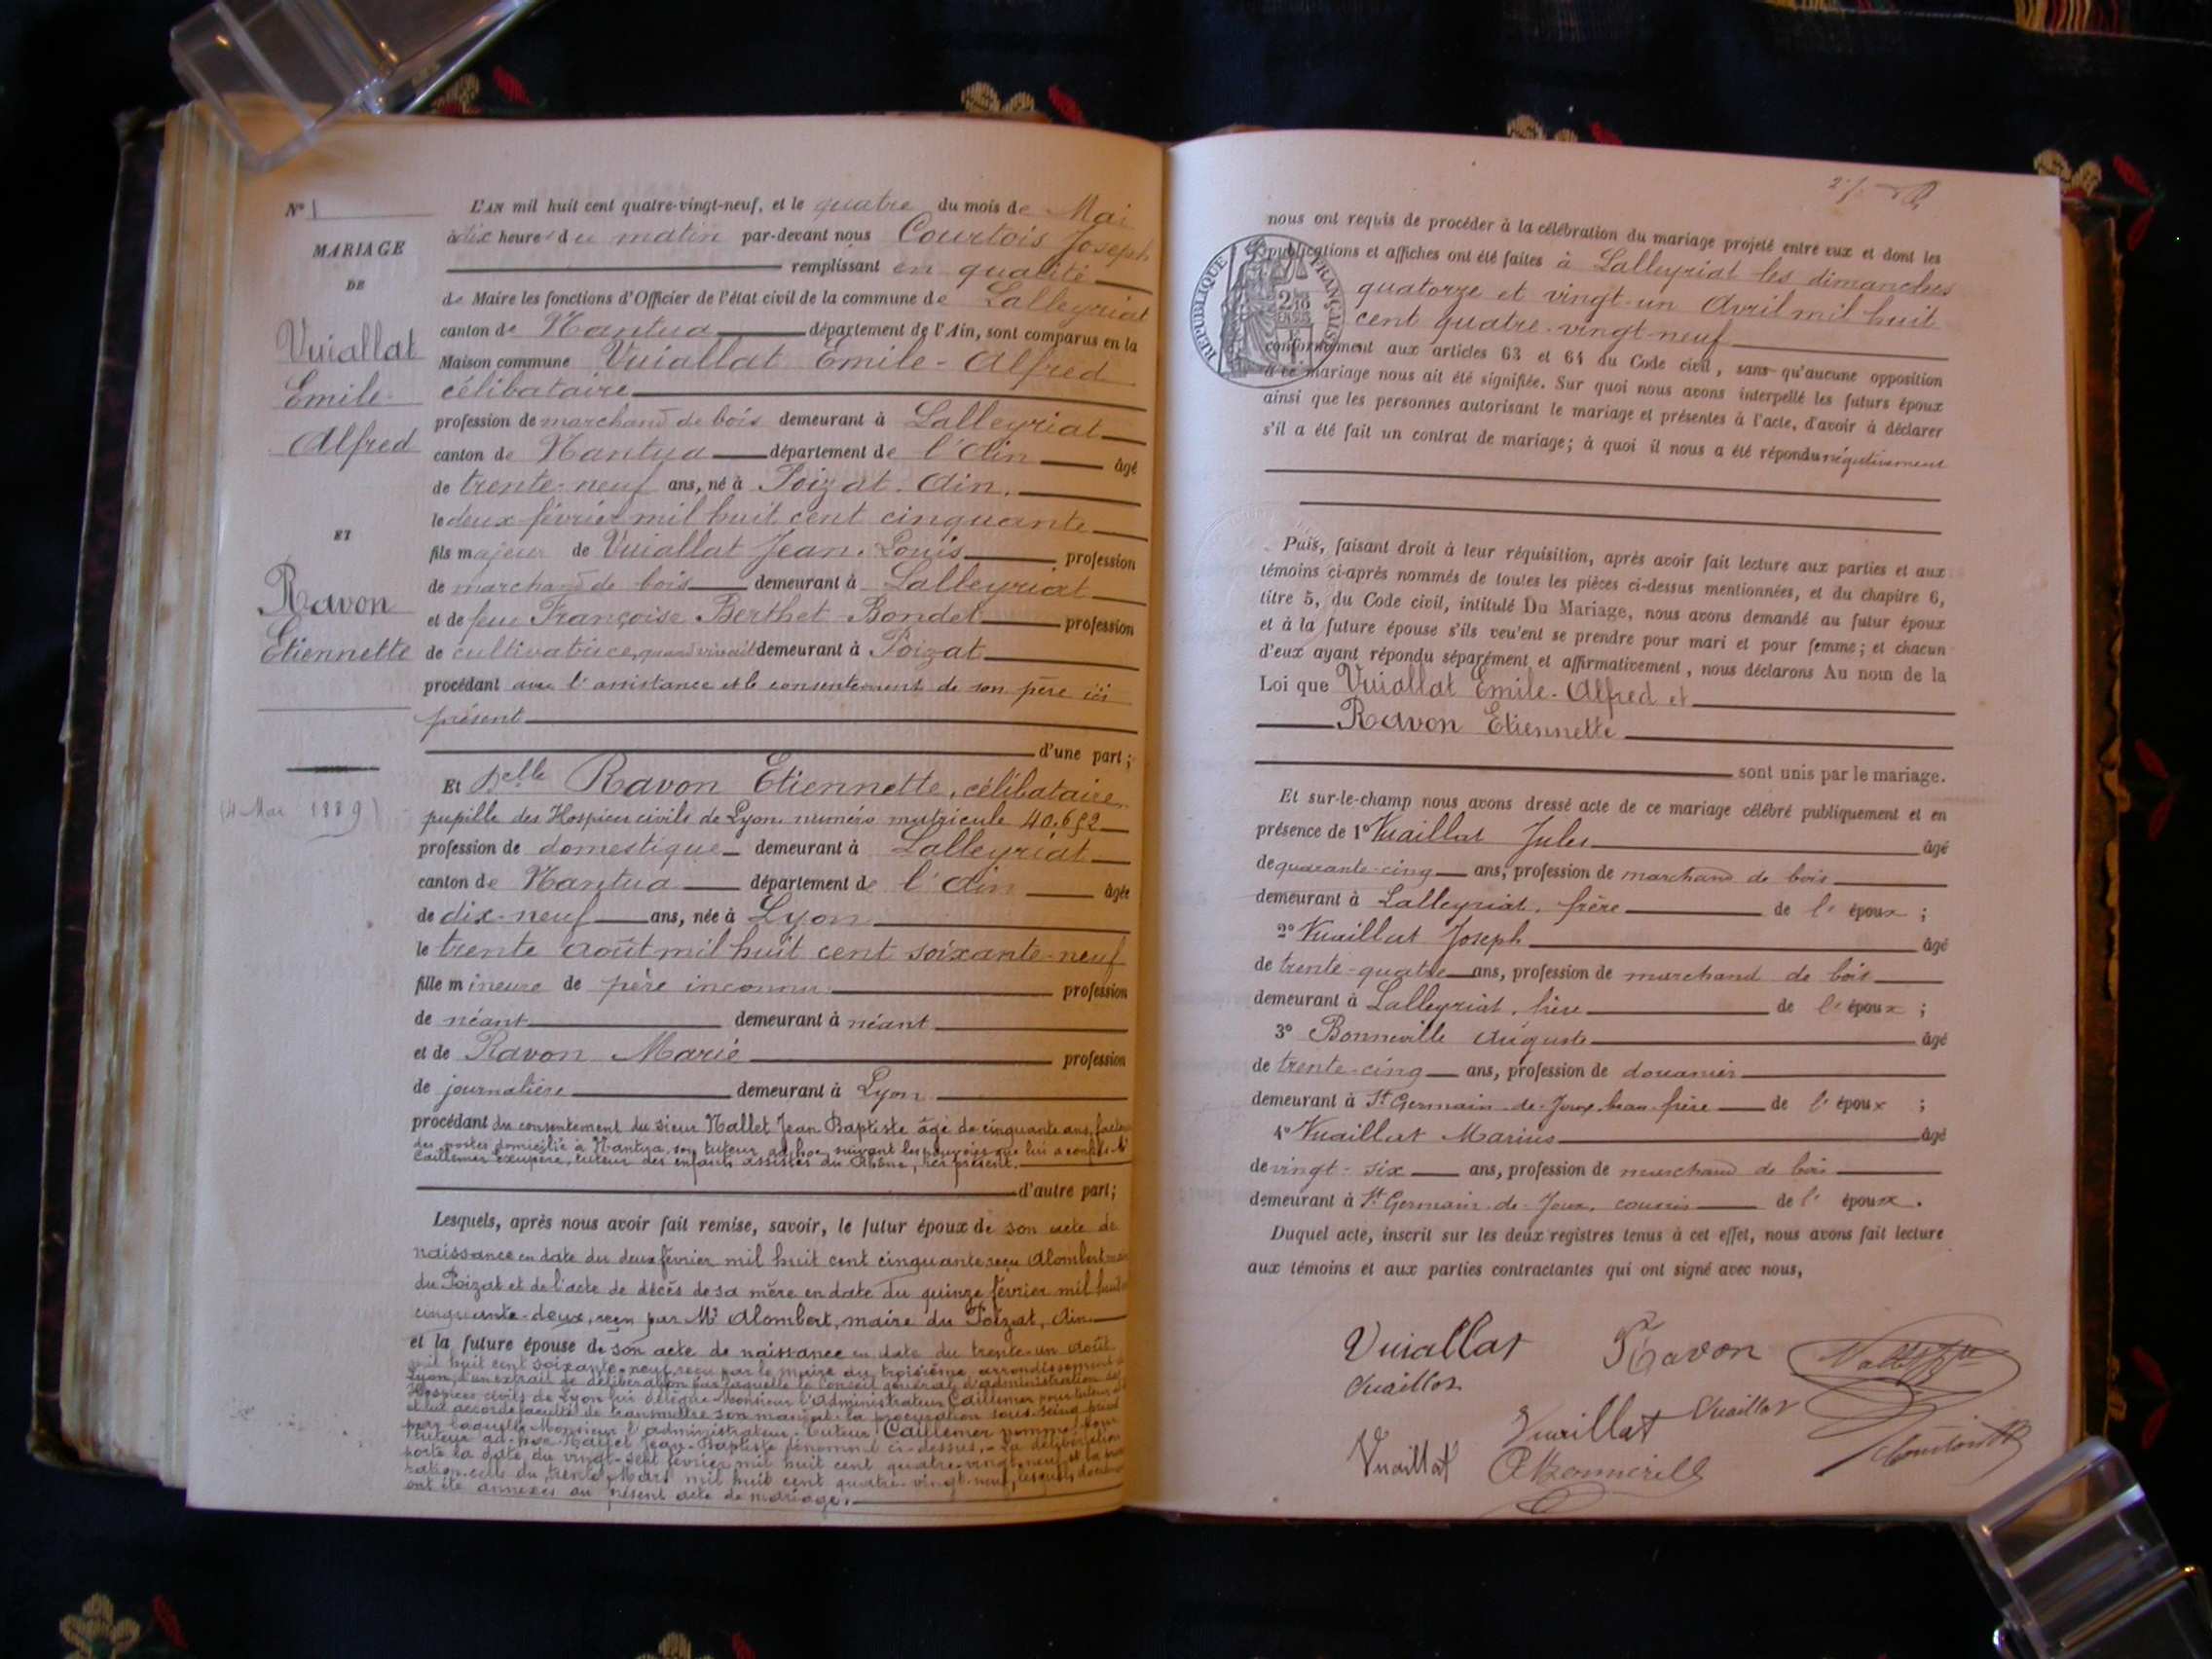 N° 1
MARIAGE
DE
Vuiallat
Emile
Alfred
ET
Ravon
Etiennette
(4 Mai 1889)
L'AN mil huit cent quatre-vingt-neuf, et le quatre du mois de Mai
à dix heures du matin par-devant nous Courtois Joseph
remplissant en qualité
de Maire les fonctions d'Officier de l'état civil de la commune de Lalleyriat
canton de Nantua département de l'Ain, sont comparus en la
Maison commune Vuiallat Emile-Alfred
célibataire
profession de marchand de bois demeurant à Lalleyriat
canton de Nantua département de l'Ain âgé
de trente-neuf ans, né à Poizat. Ain.
le deux février mil huit cent cinquante
fils majeur de Vuiallat Jean-Louis profession
de marchand de bois demeurant à Lalleyriat
et de feu Françoise Berthet-Bondet profession
de cultivatrice, quand vivait demeurant à Poizat
procédant avec l'assistance et le consentement de son père ici
présent
d'une part;
Et Delle Ravon Etiennette, célibataire,
pupille des Hospices civils de Lyon numéro matricule 40.692
profession de domestique demeurant à Lalleyriat
canton de Nantua département de l'Ain âgée
de dix-neuf ans, née à Lyon
le trente août mil huit cent soixante-neuf
fille mineure de père inconnu profession
de néant demeurant à néant
et de Ravon Marie profession
de journalière demeurant à Lyon
procédant du consentement du sieur Nallet Jean Baptiste âgé de cinquante ans, facteur
des postes domicilié à Nantua, son tuteur ad hoc, suivant les pouvoirs que lui a confiés Mr
Caillemer Exupère, tuteur des enfants assistés du Rhône, ici présent.
d'autre part;
Lesquels, après nous avoir fait remise, savoir, le futur époux de son acte de
naissance en date du deux février mil huit cent cinquante reçu Alombert
du Poizat et de l'acte de décès de sa mère en date du quinze février mil huit
cinquante-deux, reçu par Mr Alombert, maire du Poizat, Ain
et la future épouse de son acte de naissance en date du trente-un août
mil huit cent soixante-neuf, reçu par le maire du troisième arrondissement
Lyon, d'un extrait de délibération par laquelle le Conseil général d'administration des
Hospices civils de Lyon lui délègue Monsieur l'Administrateur Caillemer pour tuteur
et lui accorde faculté de transmettre son mandat. la procuration sous-seing privé
par laquelle Monsieur l'administrateur-tuteur Caillemer nomme pour
tuteur ad-hoc Nallet Jean-Baptiste dénommé ci-dessus. La délibération
porte la date du vingt-sept février mil huit cent quatre-vingt-neuf et la
celle du trente Mars mil huit cent quatre-vingt-neuf, lesquels
ont été annexés au présent acte de mariage.
nous ont requis de procéder à la célébration du mariage projeté entre eux et dont les
publications et affiches ont été faites à Lalleyriat les dimanches
quatorze et vingt-un Avril mil huit
cent quatre-vingt-neuf
RÉPUBLIQUE FRANÇAISE
conformément aux articles 63 et 64 du Code civil, sans qu'aucune opposition
à ce mariage nous ait été signifiée. Sur quoi nous avons interpellé les futurs époux
ainsi que les personnes autorisant le mariage et présentes à l'acte, d'avoir à déclarer
s'il a été fait un contrat de mariage; à quoi il nous a été répondu négativement
Puis, faisant droit à leur réquisition, après avoir fait lecture aux parties et aux
témoins ci-après nommés de toutes les pièces ci-dessus mentionnées, et du chapitre 6,
titre 5, du Code civil, intitulé Du Mariage, nous avons demandé au futur époux
et à la future épouse s'ils veulent se prendre pour mari et pour femme; et chacun
d'eux ayant répondu séparément et affirmativement, nous déclarons Au nom de la
Loi que Vuiallat Emile-Alfred et
Ravon Etiennette
sont unis par le mariage.
Et sur-le-champ nous avons dressé acte de ce mariage célébré publiquement et en
présence de 1° Vuaillat Jules âgé
de quarante-cinq ans, profession de marchand de bois
demeurant à Lalleyriat, frère de l'époux;
2° Vuaillat Joseph âgé
de trente-quatre ans, profession de marchand de bois
demeurant à Lalleyriat, frère de l'époux;
3° Bonneville Auguste âgé
de trente-cinq ans, profession de douanier
demeurant à St Germain-de-Joux, beau-frère de l'époux;
4° Vuaillat Marius âgé
de vingt-six ans, profession de marchand de bois
demeurant à St Germain-de-Joux, cousin de l'époux.
Duquel acte, inscrit sur les deux registres tenus à cet effet, nous avons fait lecture
aux témoins et aux parties contractantes qui ont signé avec nous,
Vuiallat Ravon Nallet
Vuaillat
Vuaillat Vuaillat
Vuaillat ABonneville Courtois